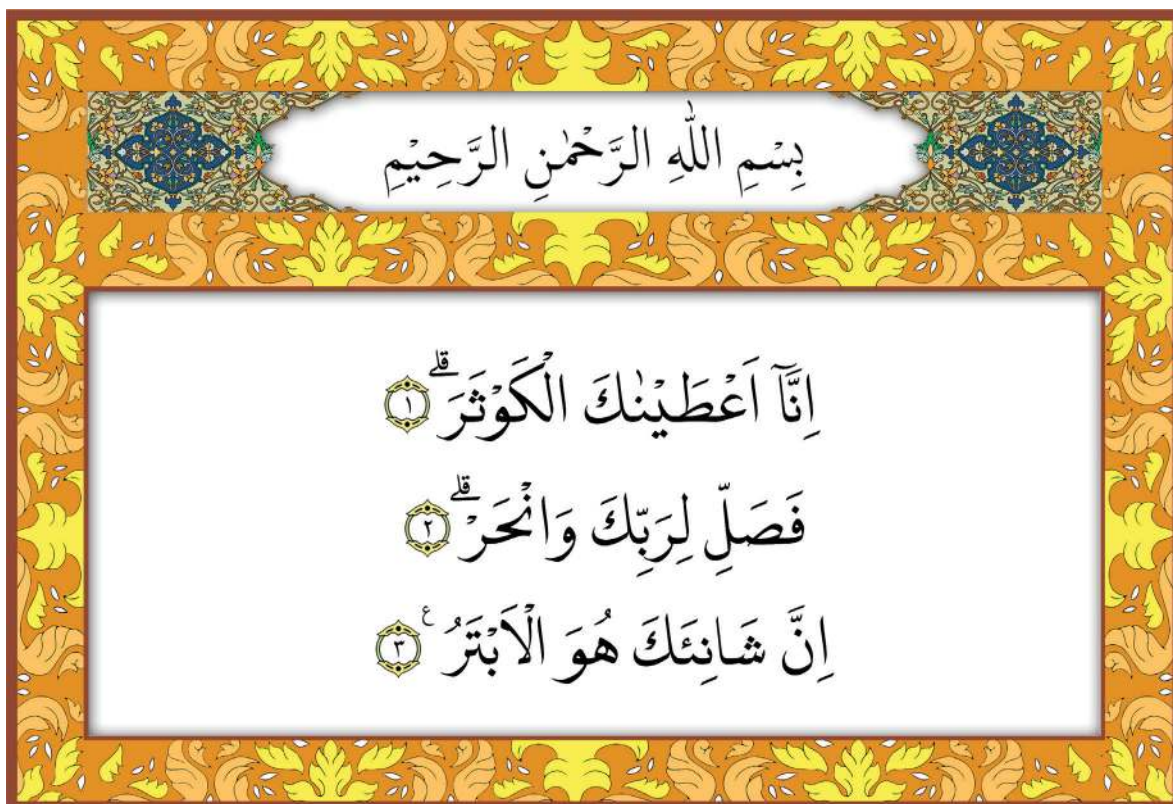 بِسْمِ اللّٰهِ الرَّحْمٰنِ الرَّحِيْمِ
اِنَّآ اَعْطَيْنٰكَ الْكَوْثَرَۗ ١
فَصَلِّ لِرَبِّكَ وَانْحَرْۗ ٢
اِنَّ شَانِئَكَ هُوَ الْاَبْتَرُ ࣖ ٣